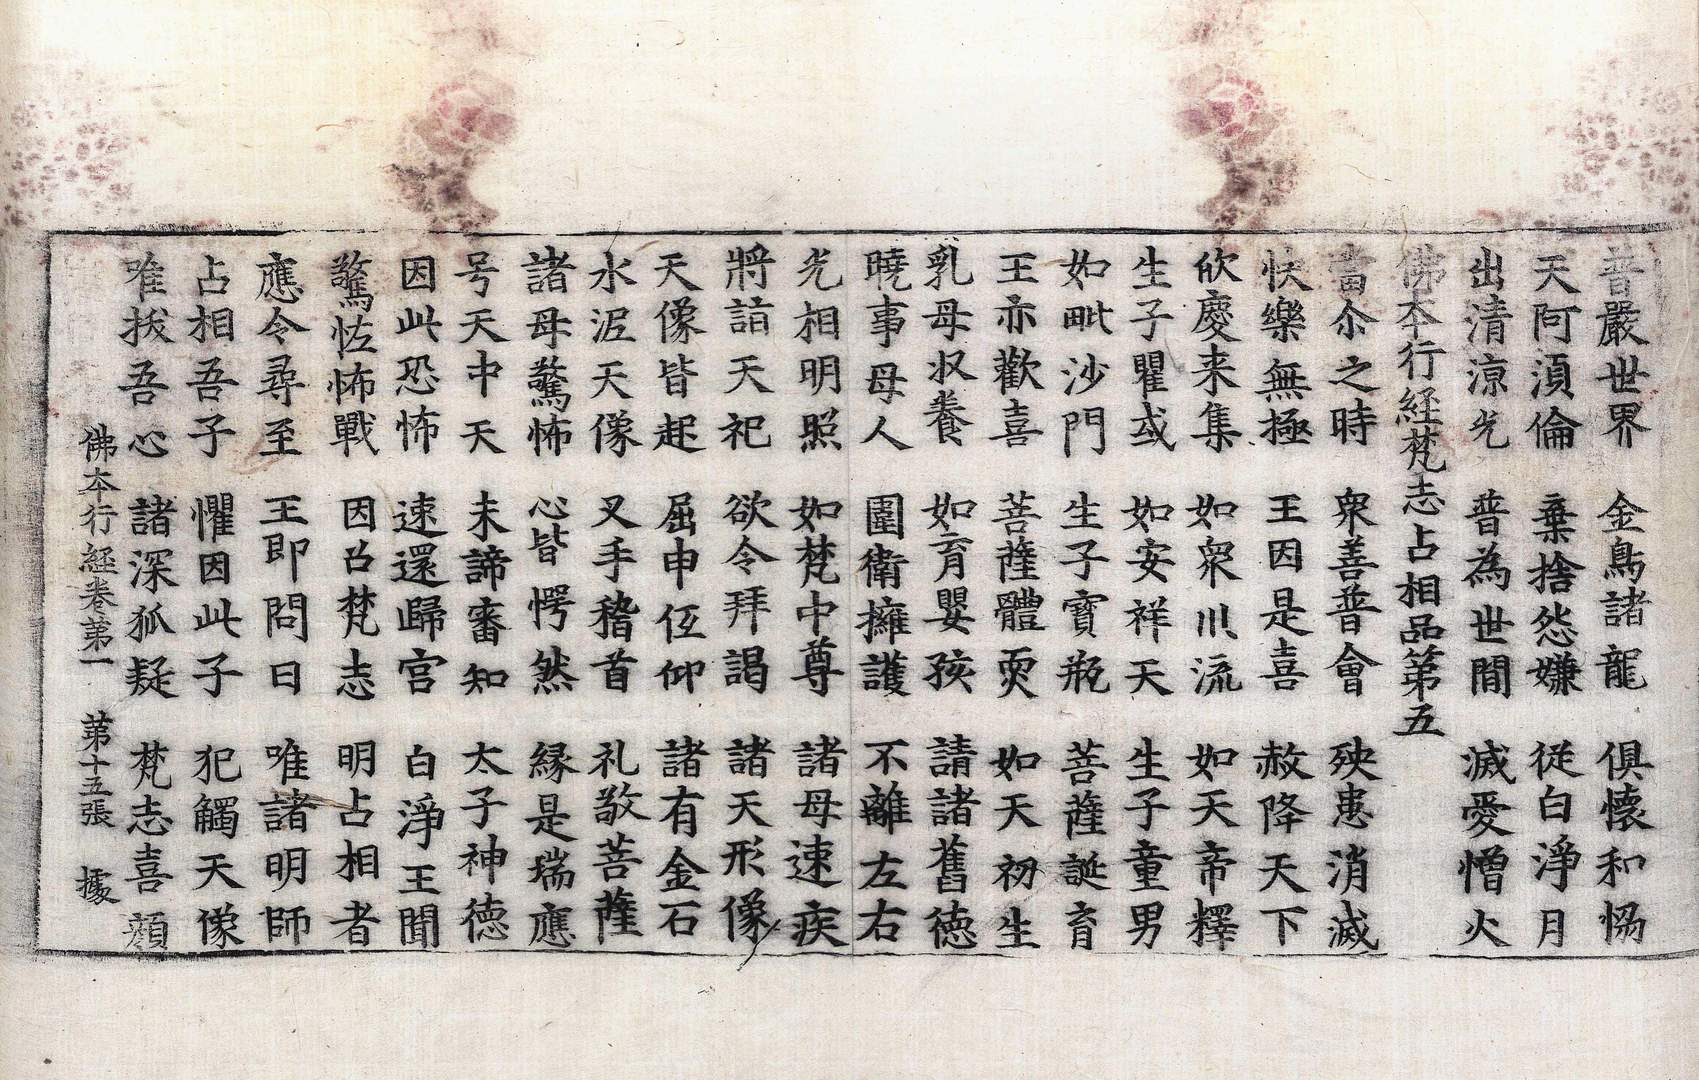 普嚴世界　金鳥諸龍　俱懷和惱
天阿湏倫　棄捨怨嫌　從白淨月
出清涼光　普為世間　滅愛憎火
佛本行經梵志占相品第五
當尒之時　衆善普會　殃患消滅
快樂無極　王因是喜　赦降天下
欣慶来集　如衆川流　如天帝釋
生子瞿或　如安祥天　生子童男
如毗沙門　生子寶瓶　菩薩誕育
王亦歡喜　菩薩體耎　如天初生
乳母收養　如育嬰孩　請諸舊德
曉事母人　圍衛擁護　不離左右
光相明照　如梵中尊　諸母速疾
將詣天祀　欲令拜謁　諸天形像
天像皆起　屈申伍仰　諸有金石
水泥天像　叉手稽首　礼敬菩薩
諸母驚怖　心皆愕然　緣是瑞應
号天中天　未諦審知　太子神德
因此恐怖　速還歸宮　白淨王聞
驚恠怖戰　因召梵志　明占相者
應令尋至　王即問曰　唯諸明師
占相吾子　懼因此子　犯觸天像
唯拔吾心　諸深狐疑　梵志喜顏
佛本行經卷苐一　苐十五張　據